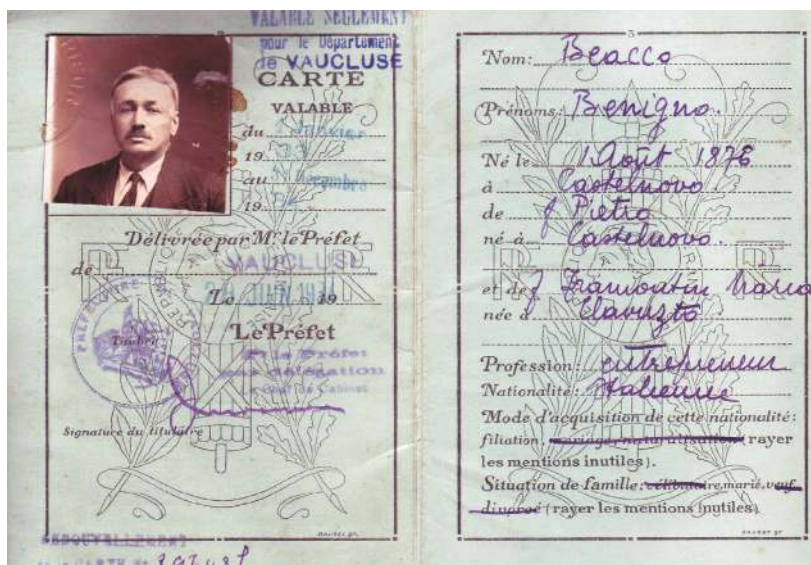 VALABLE SEULEMENT
pour le Département
de VAUCLUSE
CARTE
VALABLE
du 1 Janvier
19
au 31 Décembre
19
Délivrée par Mr le Préfet
de VAUCLUSE
Le 20 JUIN 19
Le Préfet
Timbre
Pr le Préfet
par délégation
Le Chef de Cabinet
Signature du titulaire
RENOUVELLEMENT
3
Nom: Beacco
Prénoms: Benigno.
Né le 1 Août 1876
à Castelnovo
de f Pietro
né à Castelnovo.
et de f Framontin Maria
née à Clauzto
Profession: entrepreneur
Nationalité: Italienne
Mode d'acquisition de cette nationalité:
filiation, mariage, naturalisation (rayer
les mentions inutiles).
Situation de famille: célibataire, marié, veuf,
divorcé (rayer les mentions inutiles)